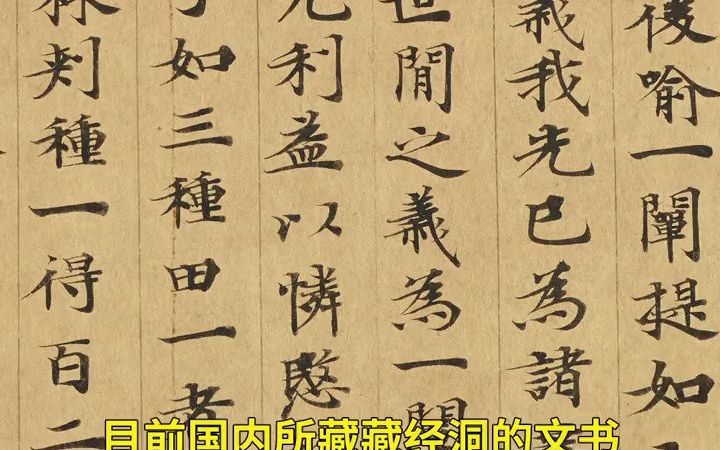 後喻一闡提如
義我先已為諸
世間之義為一
无利益以憐愍
如三種田一者
棘刾種一得百二
目前国内所藏藏经洞的文书